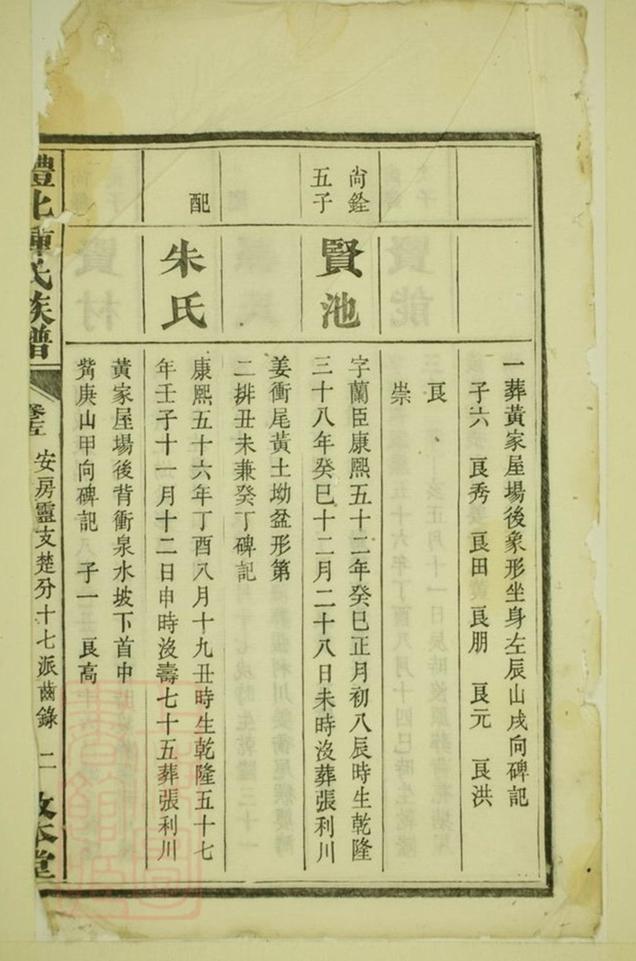 一葬黃家屋場後象形坐身左辰山戌向碑記
子六 良秀 良田 良朋 良元 良洪
良
崇
尙銓
五子
賢池
字蘭臣康熙五十二年癸巳正月初八辰時生乾隆
三十八年癸巳十二月二十八日未時沒葬張利川
姜衝尾黃土坳盆形第
二排丑未兼癸丁碑記
配
朱氏
康熙五十六年丁酉八月十九丑時生乾隆五十七
年壬子十一月十二日申時沒壽七十五葬張利川
黃家屋場後背衝泉水坡下首中
觜庚山甲向碑記 子一 良高
北 氏族譜
卷五
安房靈支楚分十七派齒錄 二
敦本堂